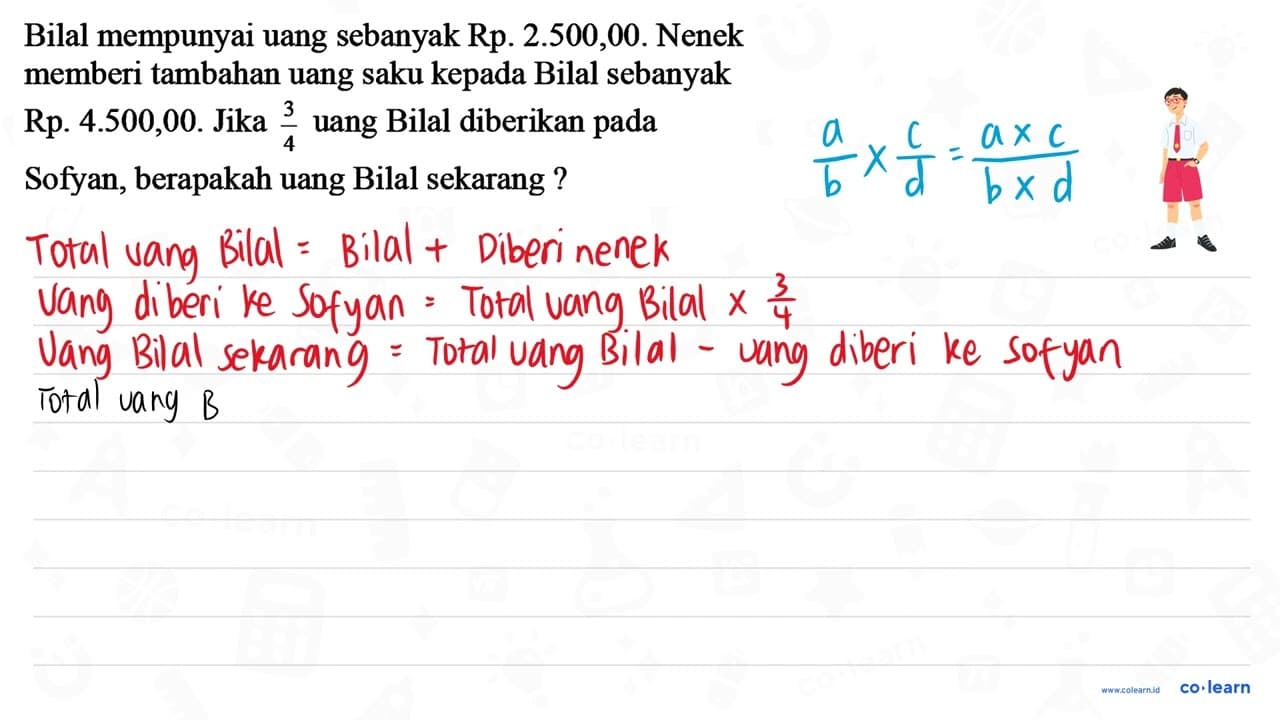 Bilal mempunyai uang sebanyak Rp. 2.500,00. Nenek
memberi tambahan uang saku kepada Bilal sebanyak
Rp. 4.500,00. Jika 3/4 uang Bilal diberikan pada
Sofyan, berapakah uang Bilal sekarang ?
a/b x c/d = a x c / b x d
Total uang Bilal = Bilal + Diberi nenek
Uang diberi ke Sofyan = Total uang Bilal x 3/4
Uang Bilal sekarang = Total uang Bilal - uang diberi ke sofyan
Total uang B
co-learn
www.colearn.id co·learn